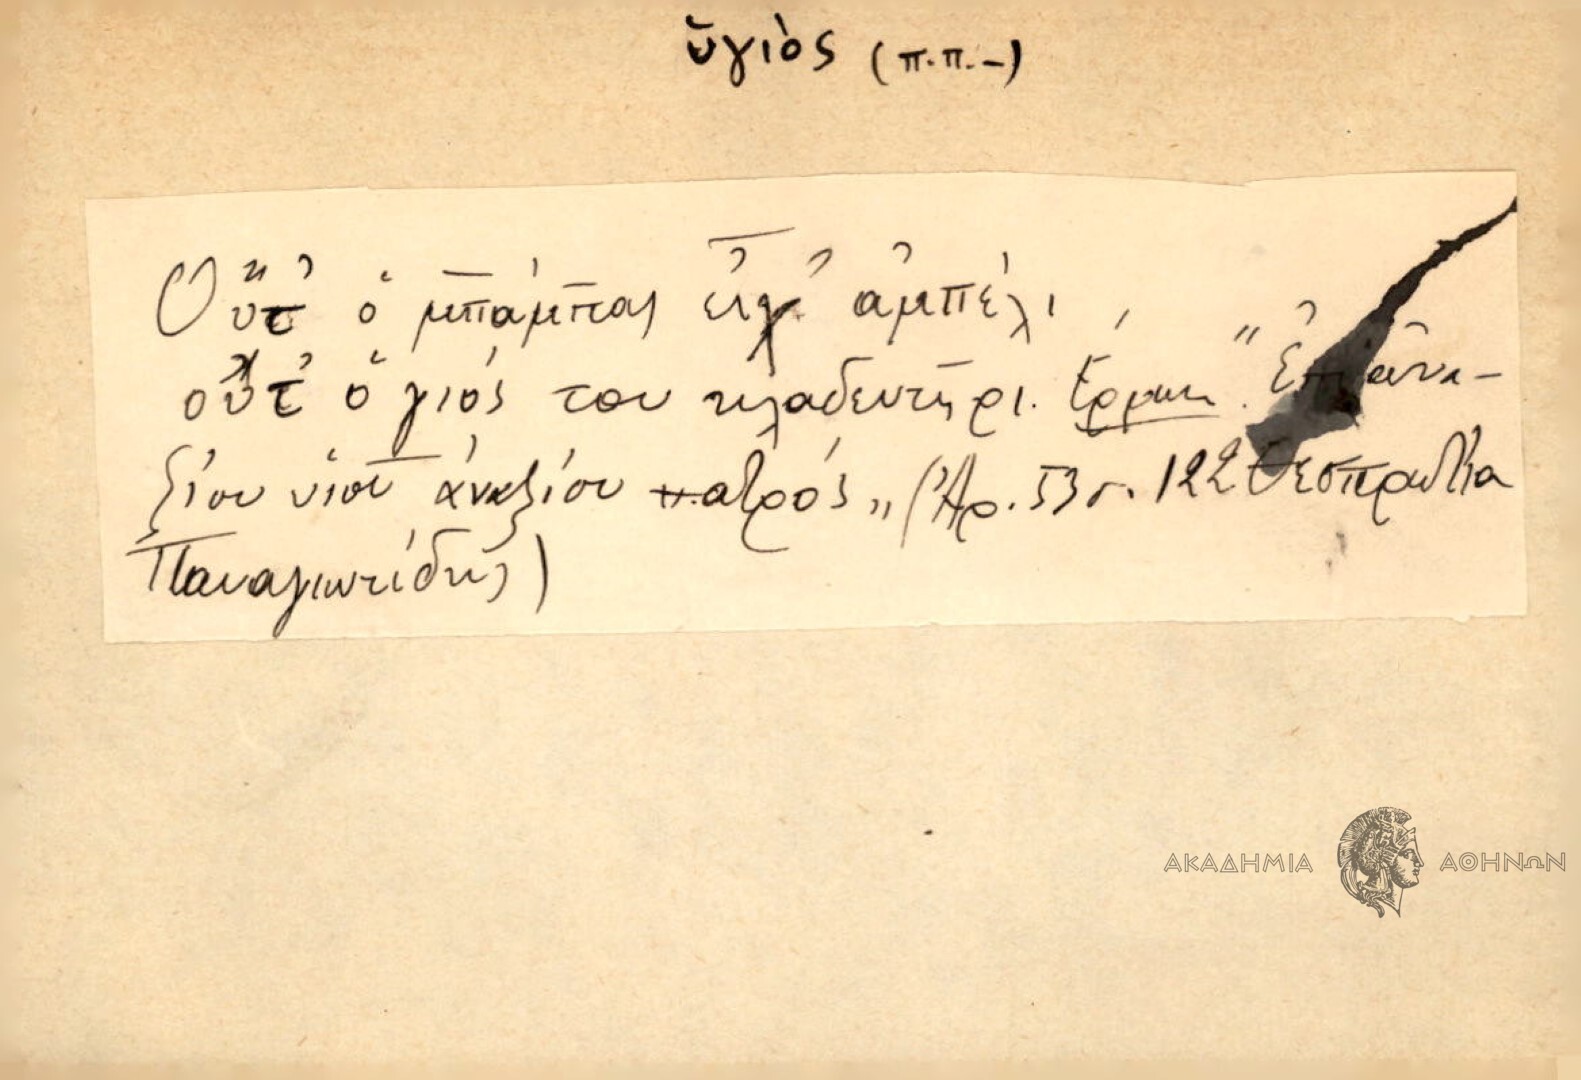 ὑγιὸς (π.π.-)
Οὔτ' ὁ μπάμπας εἶχ' ἀμπέλι,
οὔτ' ὁ γιός του κλαδευτῆρι. Ἑρμην. "Ἐπὶ ἀνα-
ξίου υἱοῦ ἀναξίου πατρός" (Ἀρ. 53 σ. 122 Θεσπρωτία
Παναγιωτίδης)
ΑΚΑΔΗΜΙΑ ΑΘΗΝΩΝ